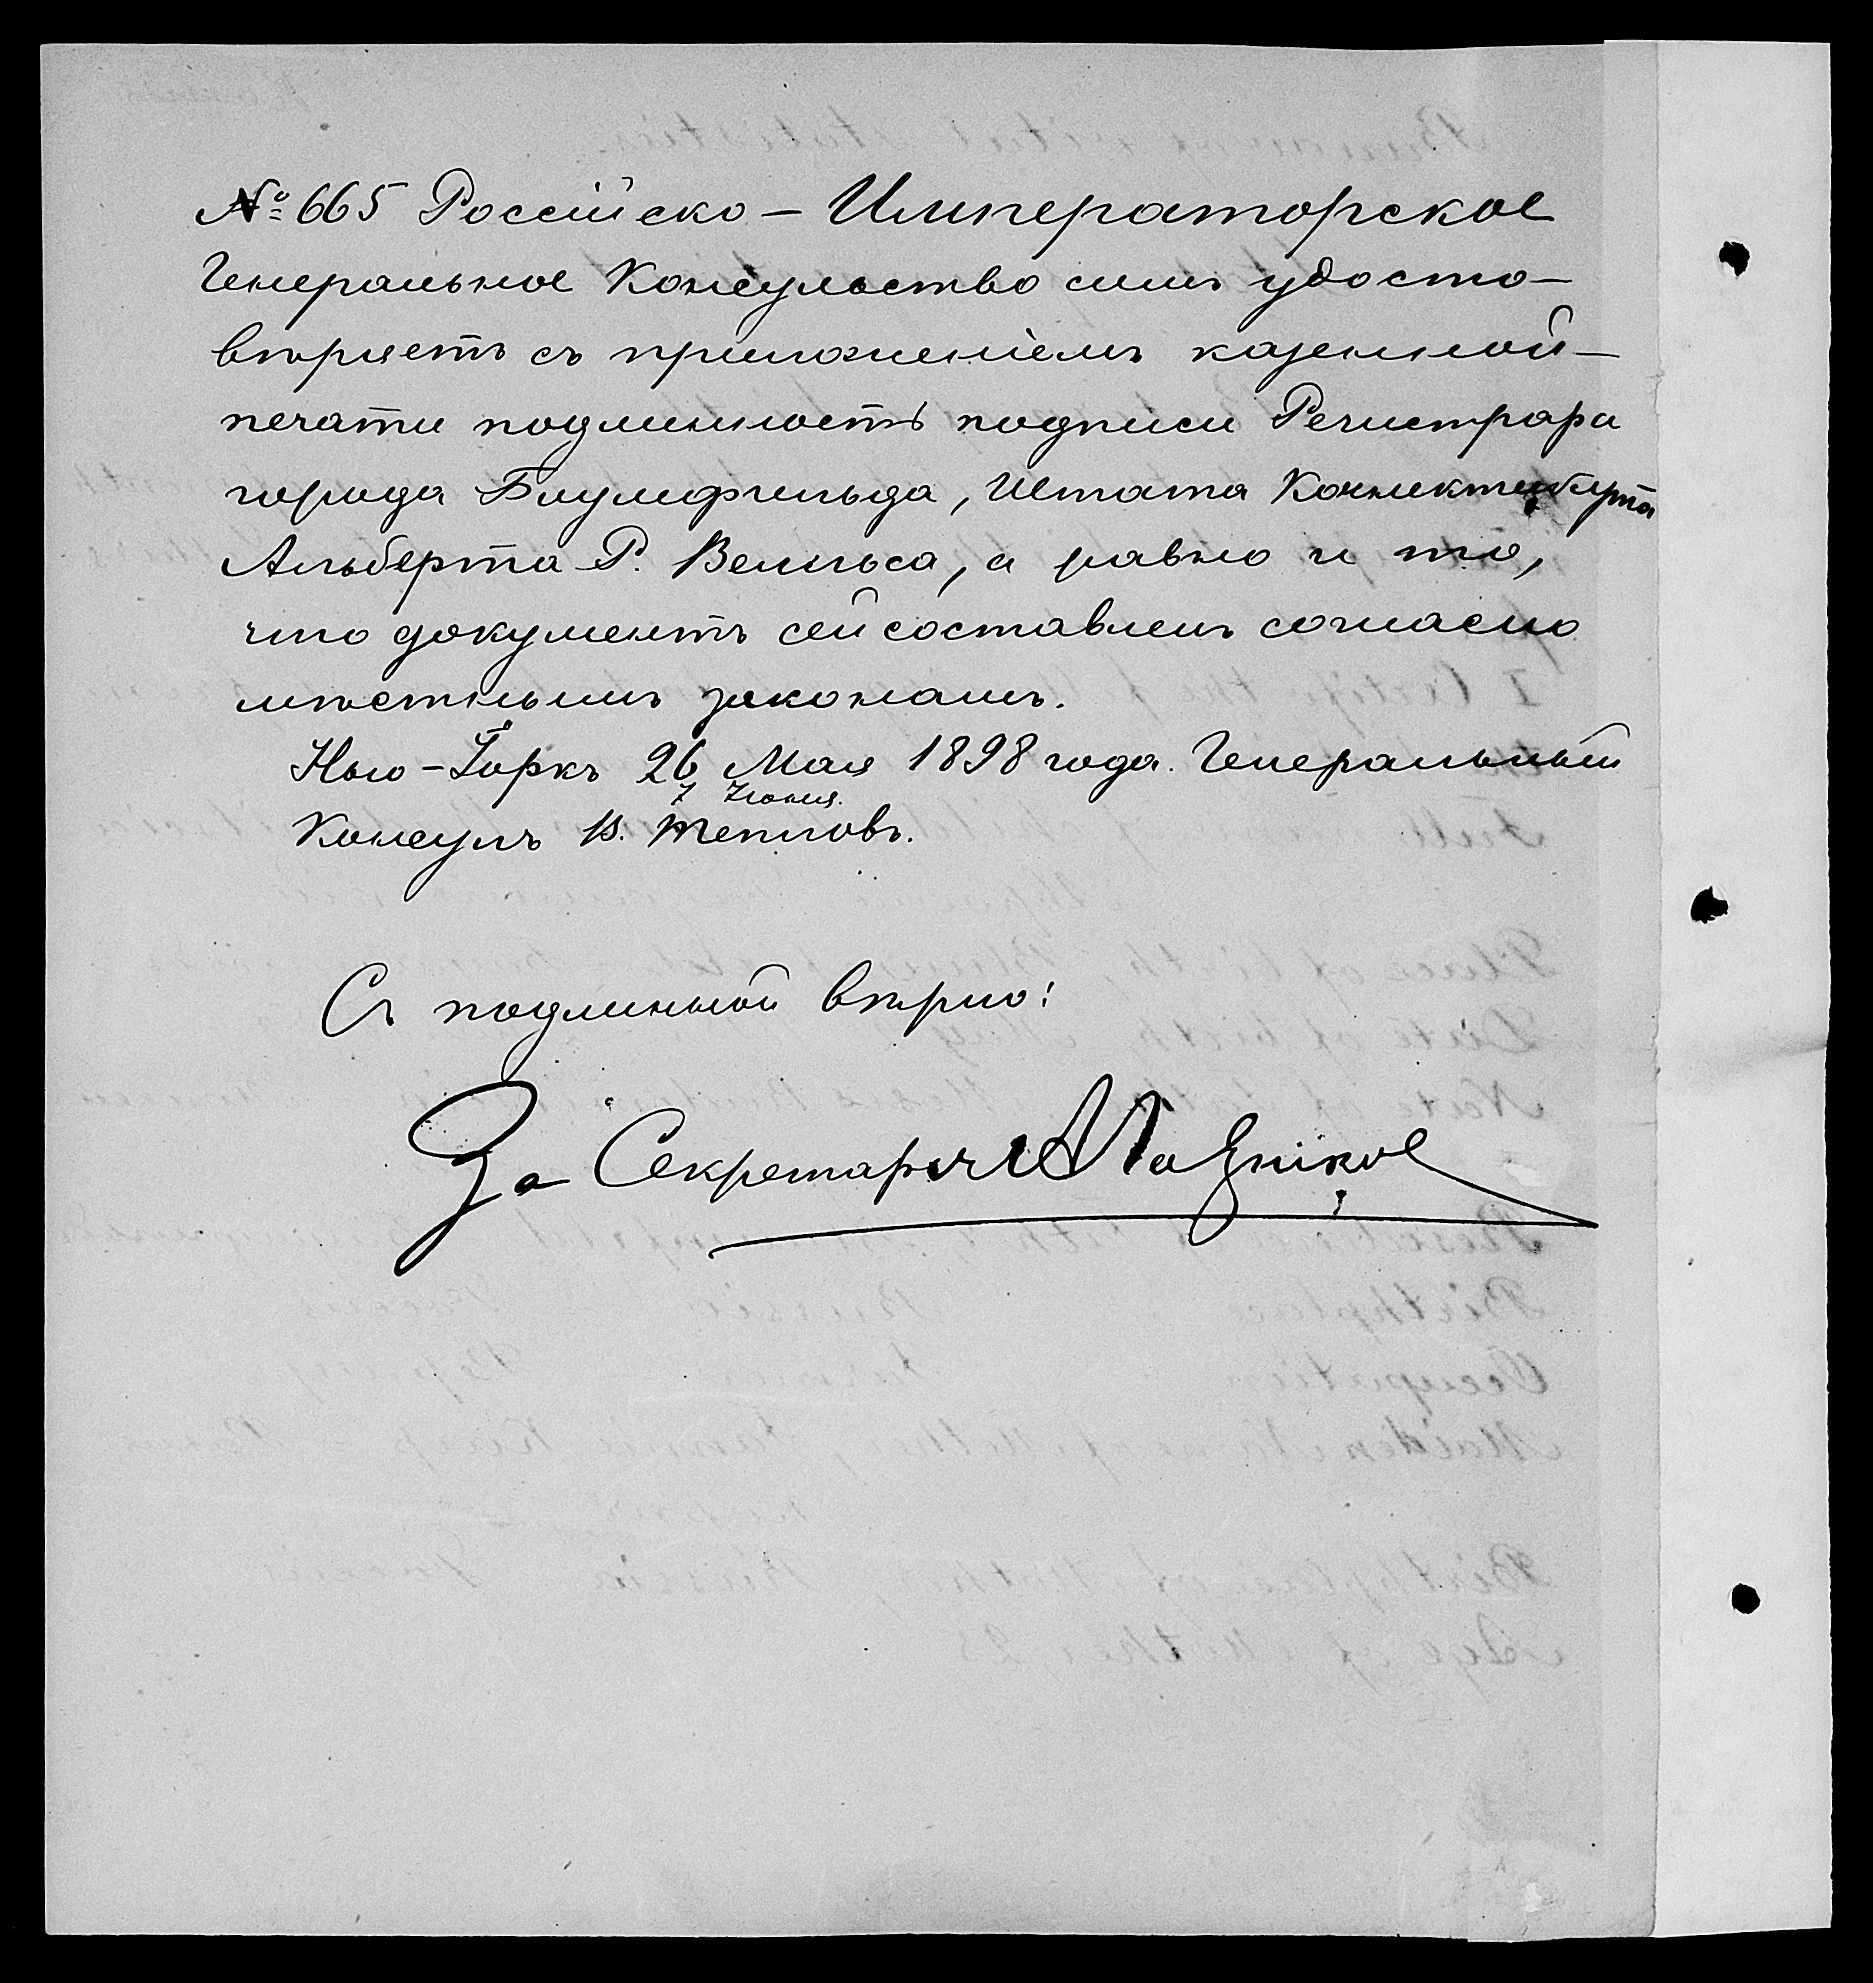 № 665 Россійско – Императорское
Генеральное Консульство симъ удосто-
вѣряетъ съ приложеніемъ казенной-
печати подлинность подписи Регистрара
города Блумфильда, Штата Коннектикута
Альберта Р. Вельса, а равно и то,
что документъ сей составленъ согласно
мѣстнымъ законамъ.
Нью-Іоркъ 26 Мая 1898 года. Генеральный
7 Іюня.
Консулъ В. Тепловъ.
Съ подлинной вѣрно:
За Секретаря